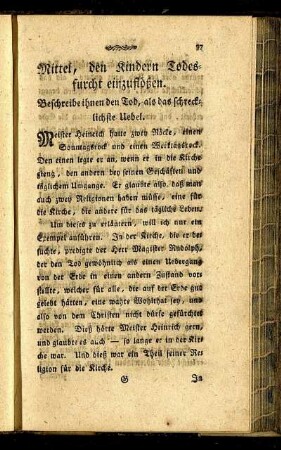 97
Mittel, den Kindern Todes-
furcht einzuflößen.
Beschreibe ihnen den Tod, als das schreck-
lichste Uebel.
Meister Heinrich hatte zwey Röcke, einen
Sonntagsrock und einen Werktagsrock.
Den einen legte er an, wenn er in die Kirche
gieng, den andern bey seinen Geschäften und
täglichem Umgange. Er glaubte also, daß man
auch zwey Religionen haben müsse, eine für
die Kirche, die andere für das tägliche Leben.
Um dieses zu erläutern, will ich nur ein
Exempel anführen. In der Kirche, die er be-
suchte, predigte der Herr Magister Rudolph,
der den Tod gewöhnlich als einen Uebergang
von der Erde in einen andern Zustand vor-
stellte, welcher für alle, die auf der Erde gut
gelebt hätten, eine wahre Wohlthat sey, und
also von dem Christen nicht dürfe gefürchtet
werden. Dieß hörte Meister Heinrich gern,
und glaubte es auch — so lange er in der Kir-
che war. Und dieß war ein Theil seiner Re-
ligion für die Kirche.
G In